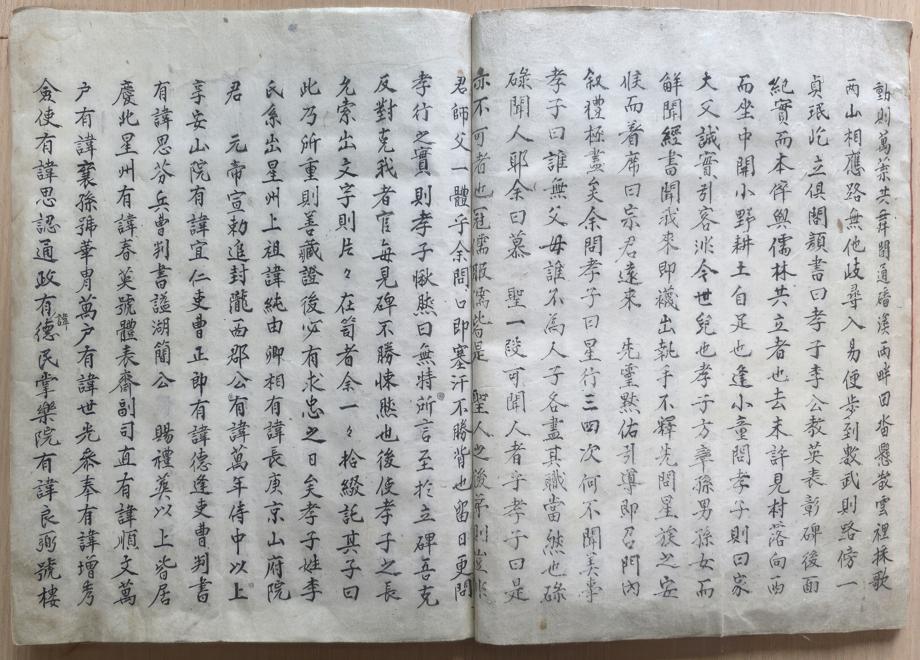 動則萬葉共舞聞通磻溪兩畔回沓懸散雲裡採歌
兩山相應路無他歧尋入易便步到數武則路傍一
貞珉屹立俱閣顏書曰孝子李公教英表彰碑後面
紀實而本倅與儒林共立者也去未許見村落向西
而坐中開小野耕土自足也逢小童問孝子則曰家
大父誠實引客洮今世兒也孝子方率孫男孫女而
鮮聞經書聞我來即襪出執手不釋先問星族之安
候而着席曰宗君遠來 先靈默佑引導即召門內
敘禮極盡矣余問孝子曰星行三四次何不聞美事
孝子曰誰無父母誰不為人子各盡其職當然也碌
碌聞人耶余曰慕 聖一段可聞人者乎孝子曰是
亦不可者也冠儒服儒皆是 聖人之後學則豈非
君師父一體乎余問口即塞汗不勝背也留日更問
孝行之實則孝子愀然曰無特所言至於立碑吾克
反對克我者官每見碑不勝悚然也後使孝子之長
允索出文字則片々在笥者余一々拾綴託其子曰
此乃所重則善藏證後必有求忠之日矣孝子姓李
氏系出星州上祖諱純由卿相有諱長庚京山府院
君 元帝宣勅追封隴西郡公有諱萬年侍中以上
享安山院有諱宜仁吏曹正郎有諱德逢吏曹判書
有諱思芬兵曹判書謚湖簡公 賜禮葬以上皆居
慶北星州有諱春英號體表齋副司直有諱順文萬
户有諱襄孫號華胄萬户有諱世光參奉有諱增秀
僉使有諱思認通政有諱德民掌樂院有諱良弼號樓